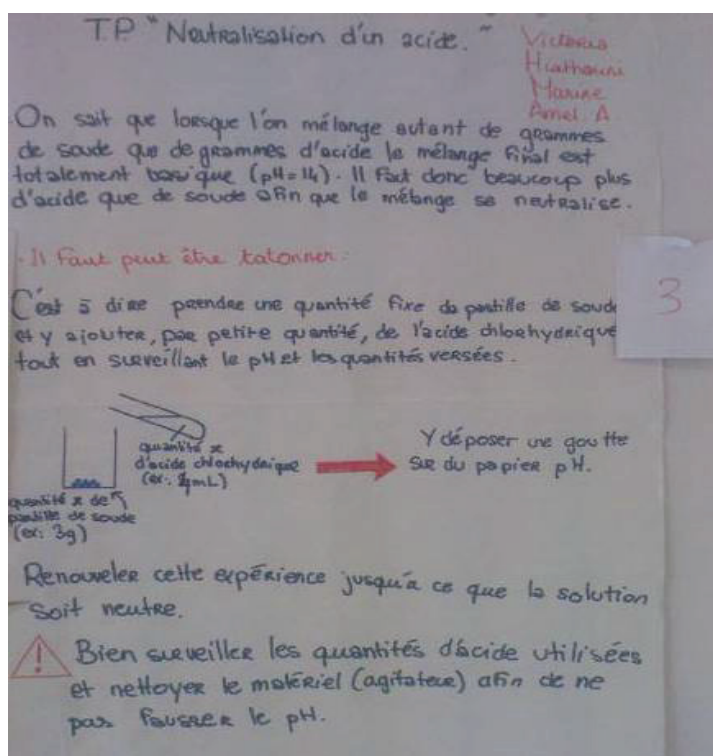 TP "Neutralisation d'un acide."
Victoria
Marine
Amel. A
On sait que lorsque l'on mélange autant de grammes
de soude que de grammes d'acide le mélange final est
totalement basique (pH=14). Il faut donc beaucoup plus
d'acide que de soude afin que le mélange se neutralise.
· Il faut peut être tatonner:
C'est à dire prendre une quantité fixe de pastille de soude
et y ajouter, par petite quantité, de l'acide chlorhydrique
tout en surveillant le pH et les quantités versées.
3
quantité x
d'acide chlorhydrique
(ex: mL)
Y déposer une goutte
sur du papier pH.
quantité x de
pastille de soude
(ex: 3g)
Renouveler cette expérience jusqu'à ce que la solution
soit neutre.
! Bien surveiller les quantités d'acide utilisées
et nettoyer le matériel (agitateur) afin de ne
pas fausser le pH.